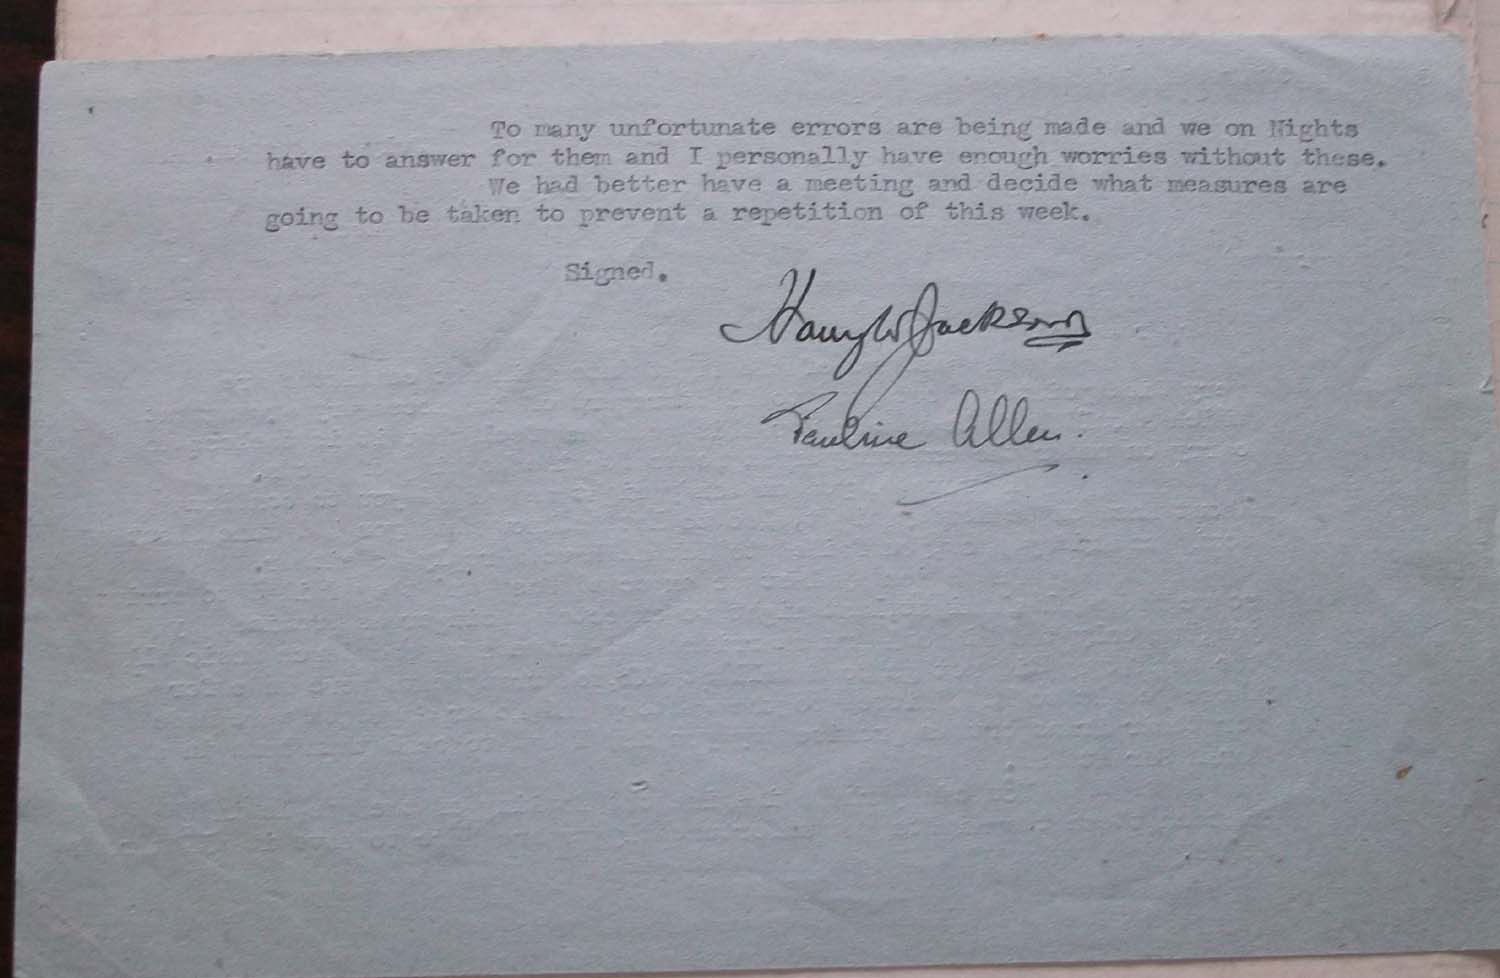 To many unfortunate errors are being made and we on Nights
have to answer for them and I personally have enough worries without these.
We had better have a meeting and decide what measures are
going to be taken to prevent a repetition of this week.
Signed.
Harry W Jackson
Pauline Allen.